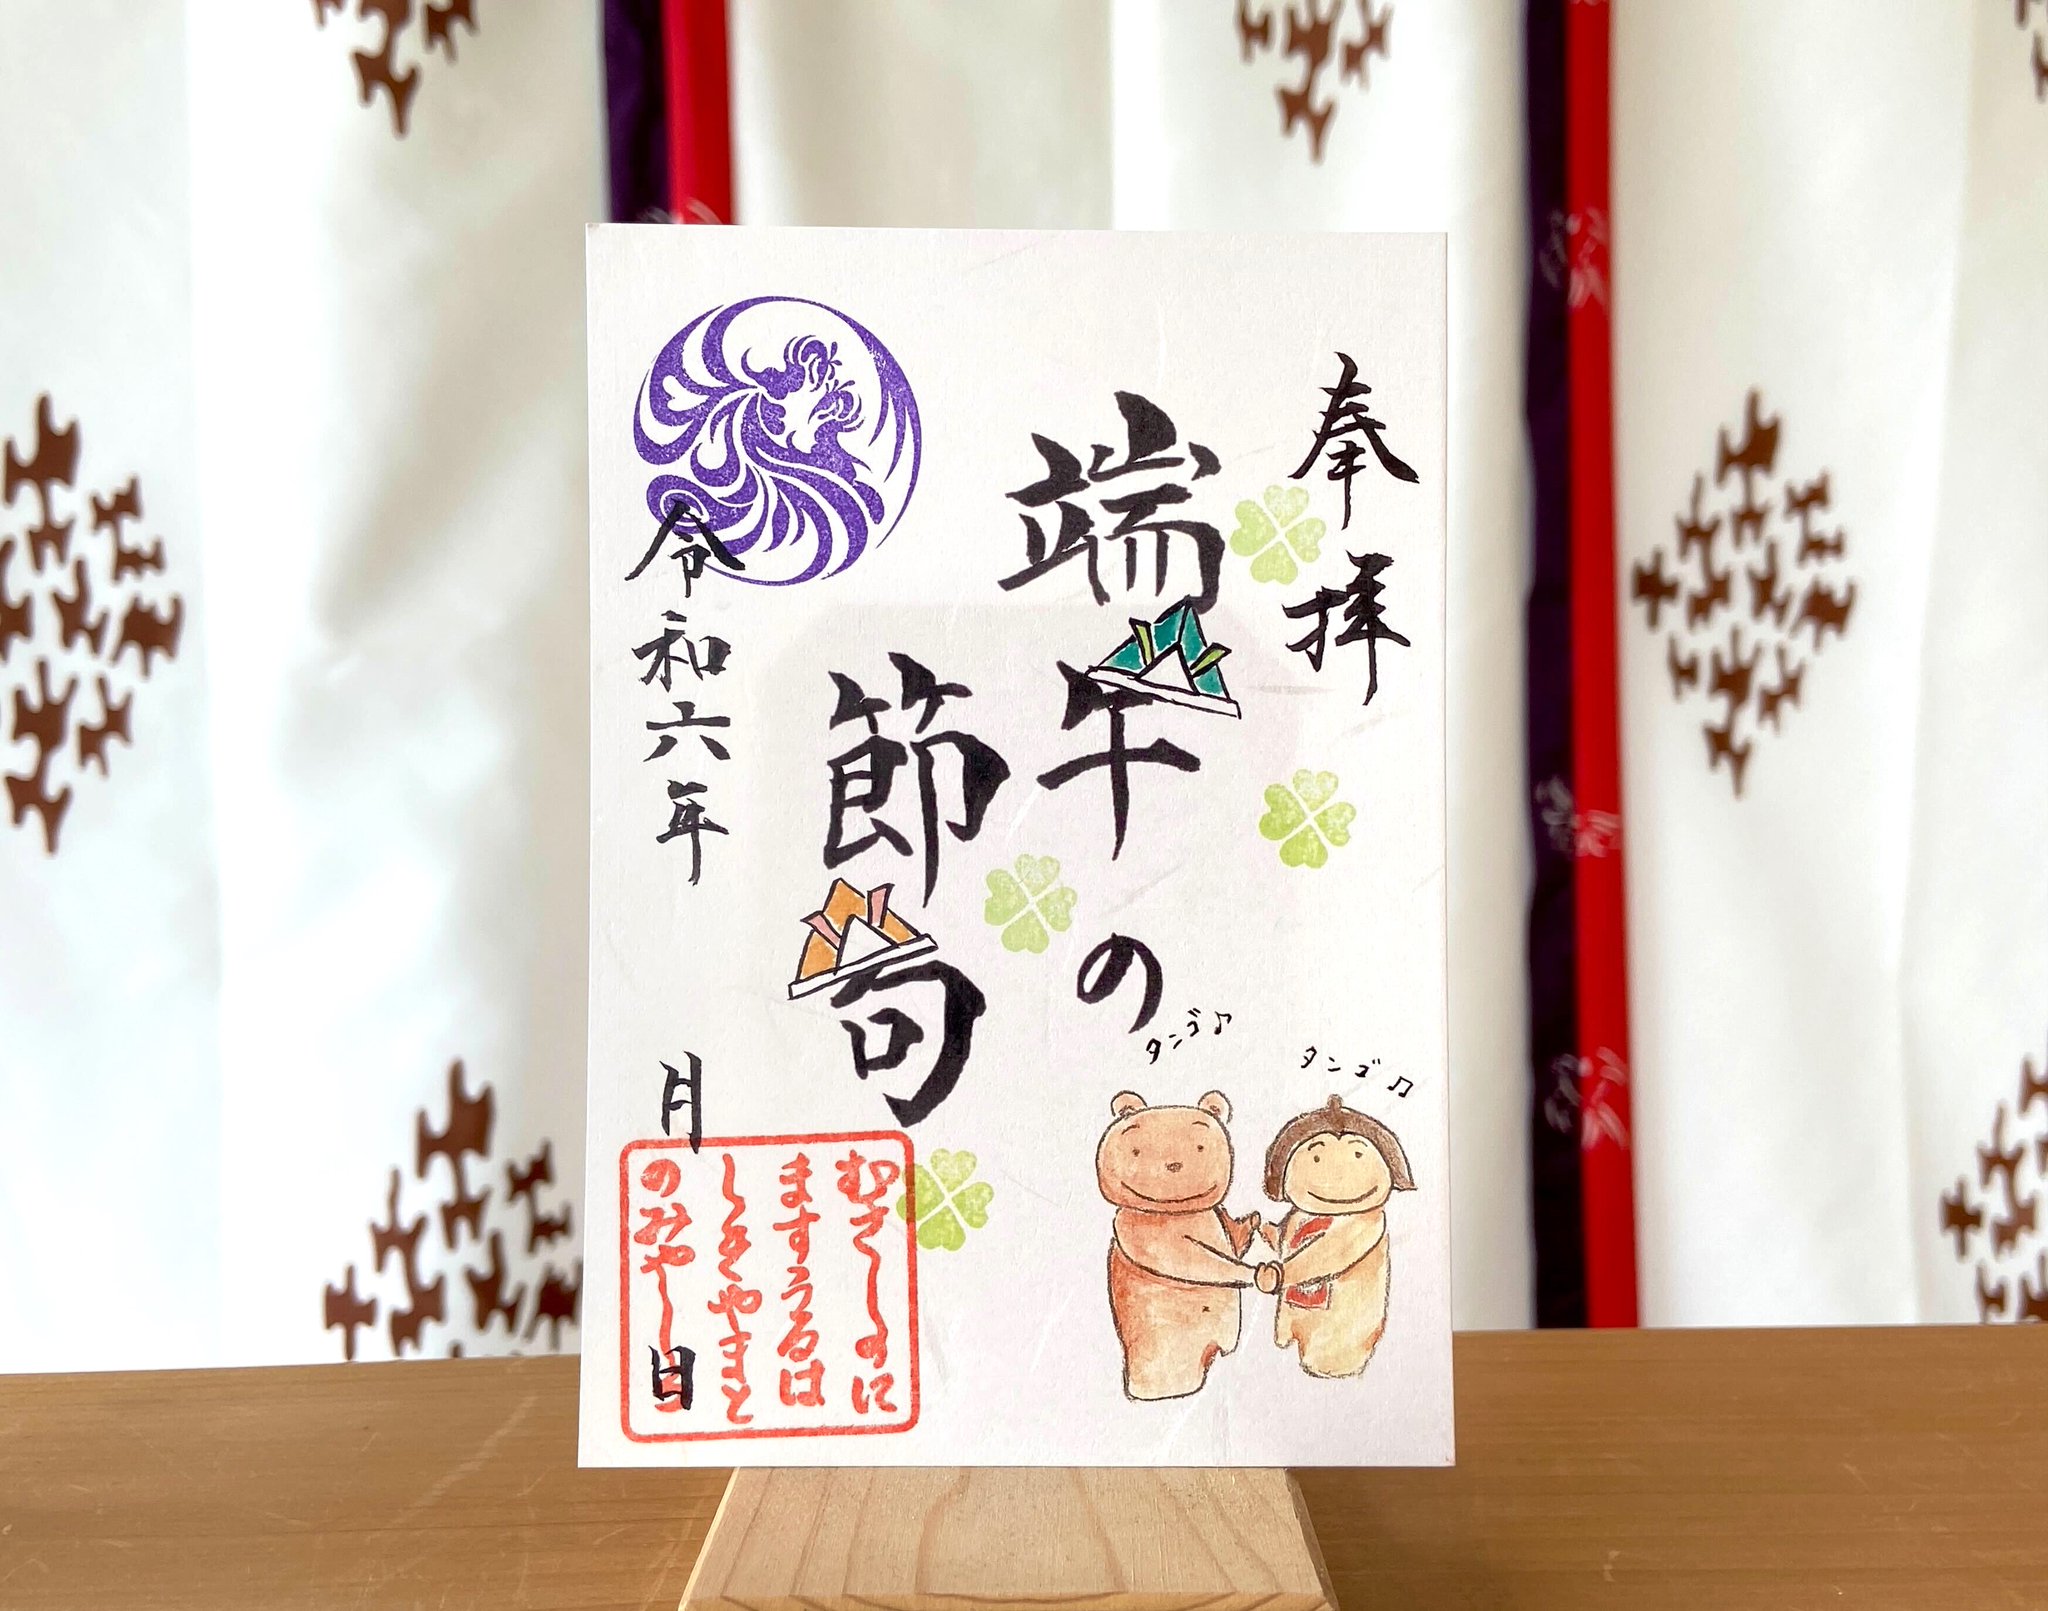 奉拝
端午の
節句
タンゴ♪
タンゴ♫
令和六年
月
日
むさしのに
ますうるは
しきやまと
のみやしろ